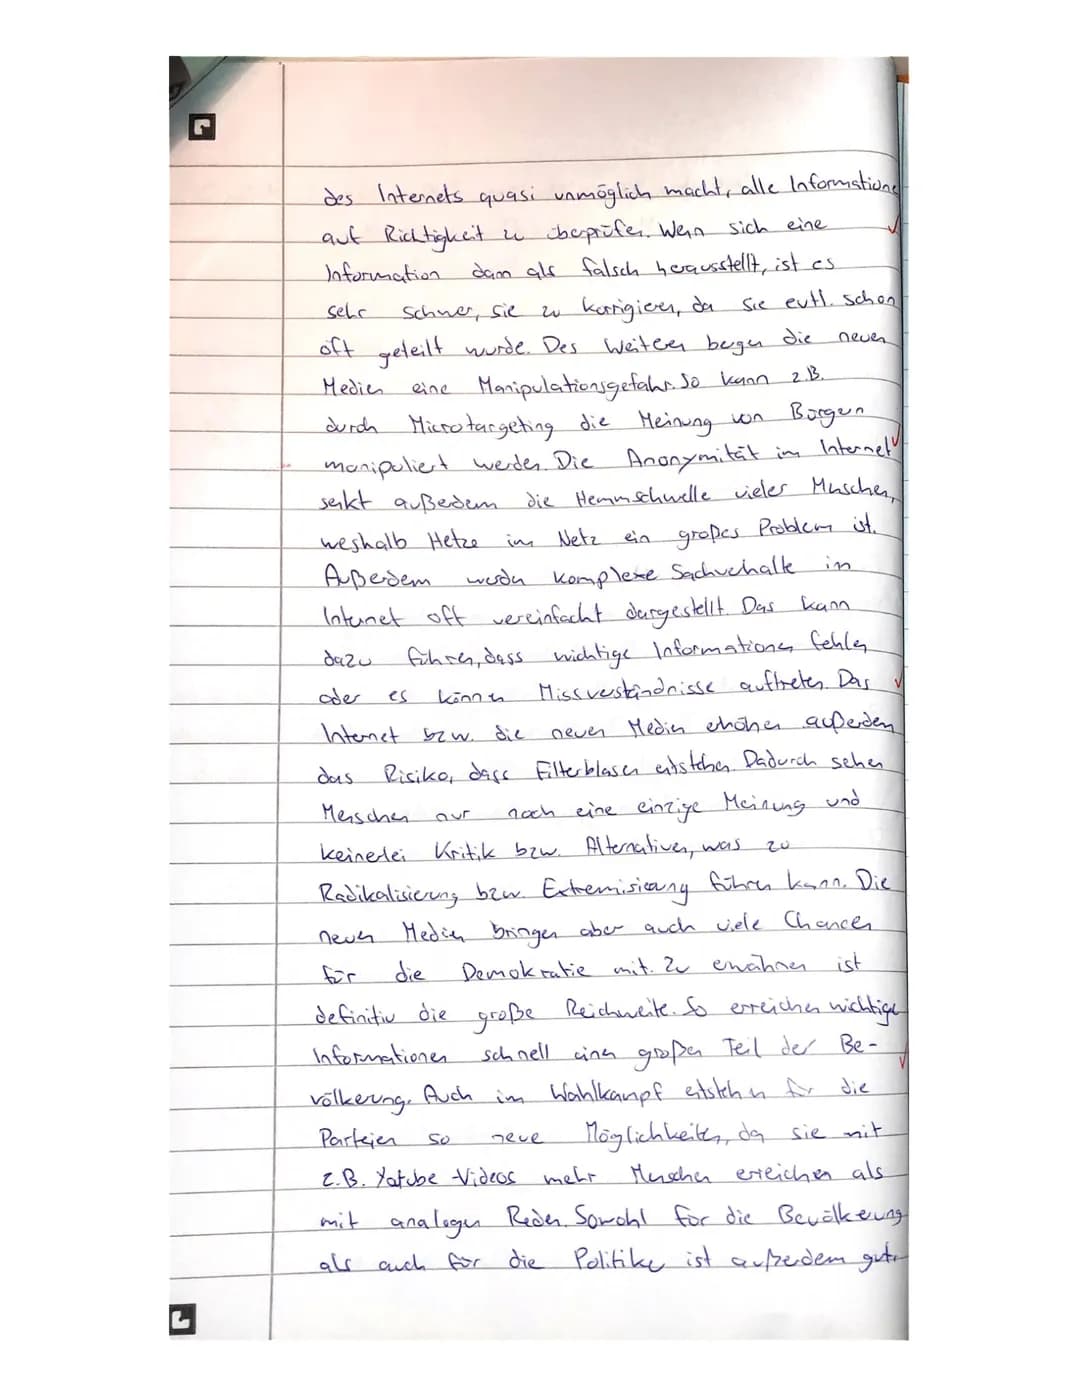 des Internets quasi unmöglich macht, alle Informatione
auf Richtigkeit zu überprüfen. Wenn sich eine
Information dann als falsch herausstellt, ist es
sehr schwer, sie zu korrigieren, da sie evtl. schon
oft geteilt wurde. Des Weiteren bergen die neuen
Medien eine Manipulationsgefahr. So kann z.B.
durch Microtargeting die Meinung von Bürgern
manipuliert werden. Die Anonymität im Internet
senkt außerdem die Hemmschwelle vieler Menschen,
weshalb Hetze im Netz ein großes Problem ist.
Außerdem werden komplexe Sachverhalte in
Internet oft vereinfacht dargestellt. Das kann
dazu führen, dass wichtige Informationen fehlen
oder es können Missverständnisse auftreten. Das
Internet bzw. die neuen Medien erhöhen außerdem
das Risiko, dass Filterblasen entstehen. Dadurch sehen
Menschen nur noch eine einzige Meinung und
keinerlei Kritik bzw. Alternativen, was zu
Radikalisierung bzw. Extremisierung führen kann. Die
neuen Medien bringen aber auch viele Chancen
für die Demokratie mit. Zu erwähnen ist
definitiv die große Reichweite. So erreichen wichtige
Informationen schnell einen großen Teil der Be-
völkerung. Auch im Wahlkampf entstehen für die
Parteien so neue Möglichkeiten, da sie mit
z.B. Yotube-Videos mehr Menschen erreichen als
mit analogen Reden. Sowohl für die Bevölkerung
als auch für die Politiker ist außerdem gut